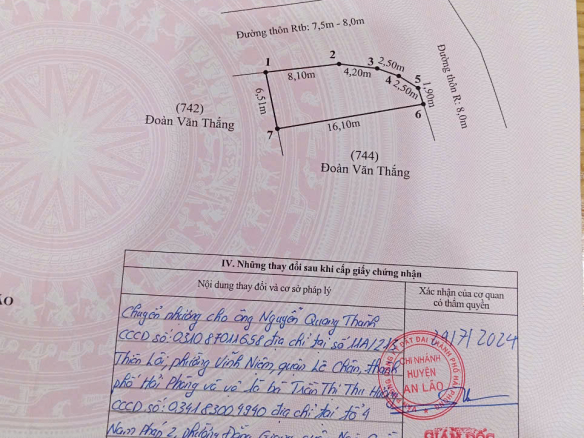 Đường thôn Rtb: 7,5m - 8,0m
Đường thôn R: 8,0m
1
2
3
4
5
6
7
8,10m
4,20m
2,50m
2,50m
1,90m
6,51m
16,10m
(742)
Đoàn Văn Thắng
(744)
Đoàn Văn Thắng
ÃO
IV. Những thay đổi sau khi cấp giấy chứng nhận
Nội dung thay đổi và cơ sở pháp lý
Xác nhận của cơ quan
có thẩm quyền
Chuyển nhượng cho ông Nguyễn Quang Thành
CCCD số: 031087011658 địa chỉ tại số
Thiên Lôi, phường Vĩnh Niệm, quận Lê Chân, thành
phố Hải Phòng và vợ là bà Trần Thị Thu
CCCD số: địa chỉ tại tổ 4
phường
/7/2024
CHI NHÁNH
HUYỆN
AN LÃO
GIÁM ĐỐC